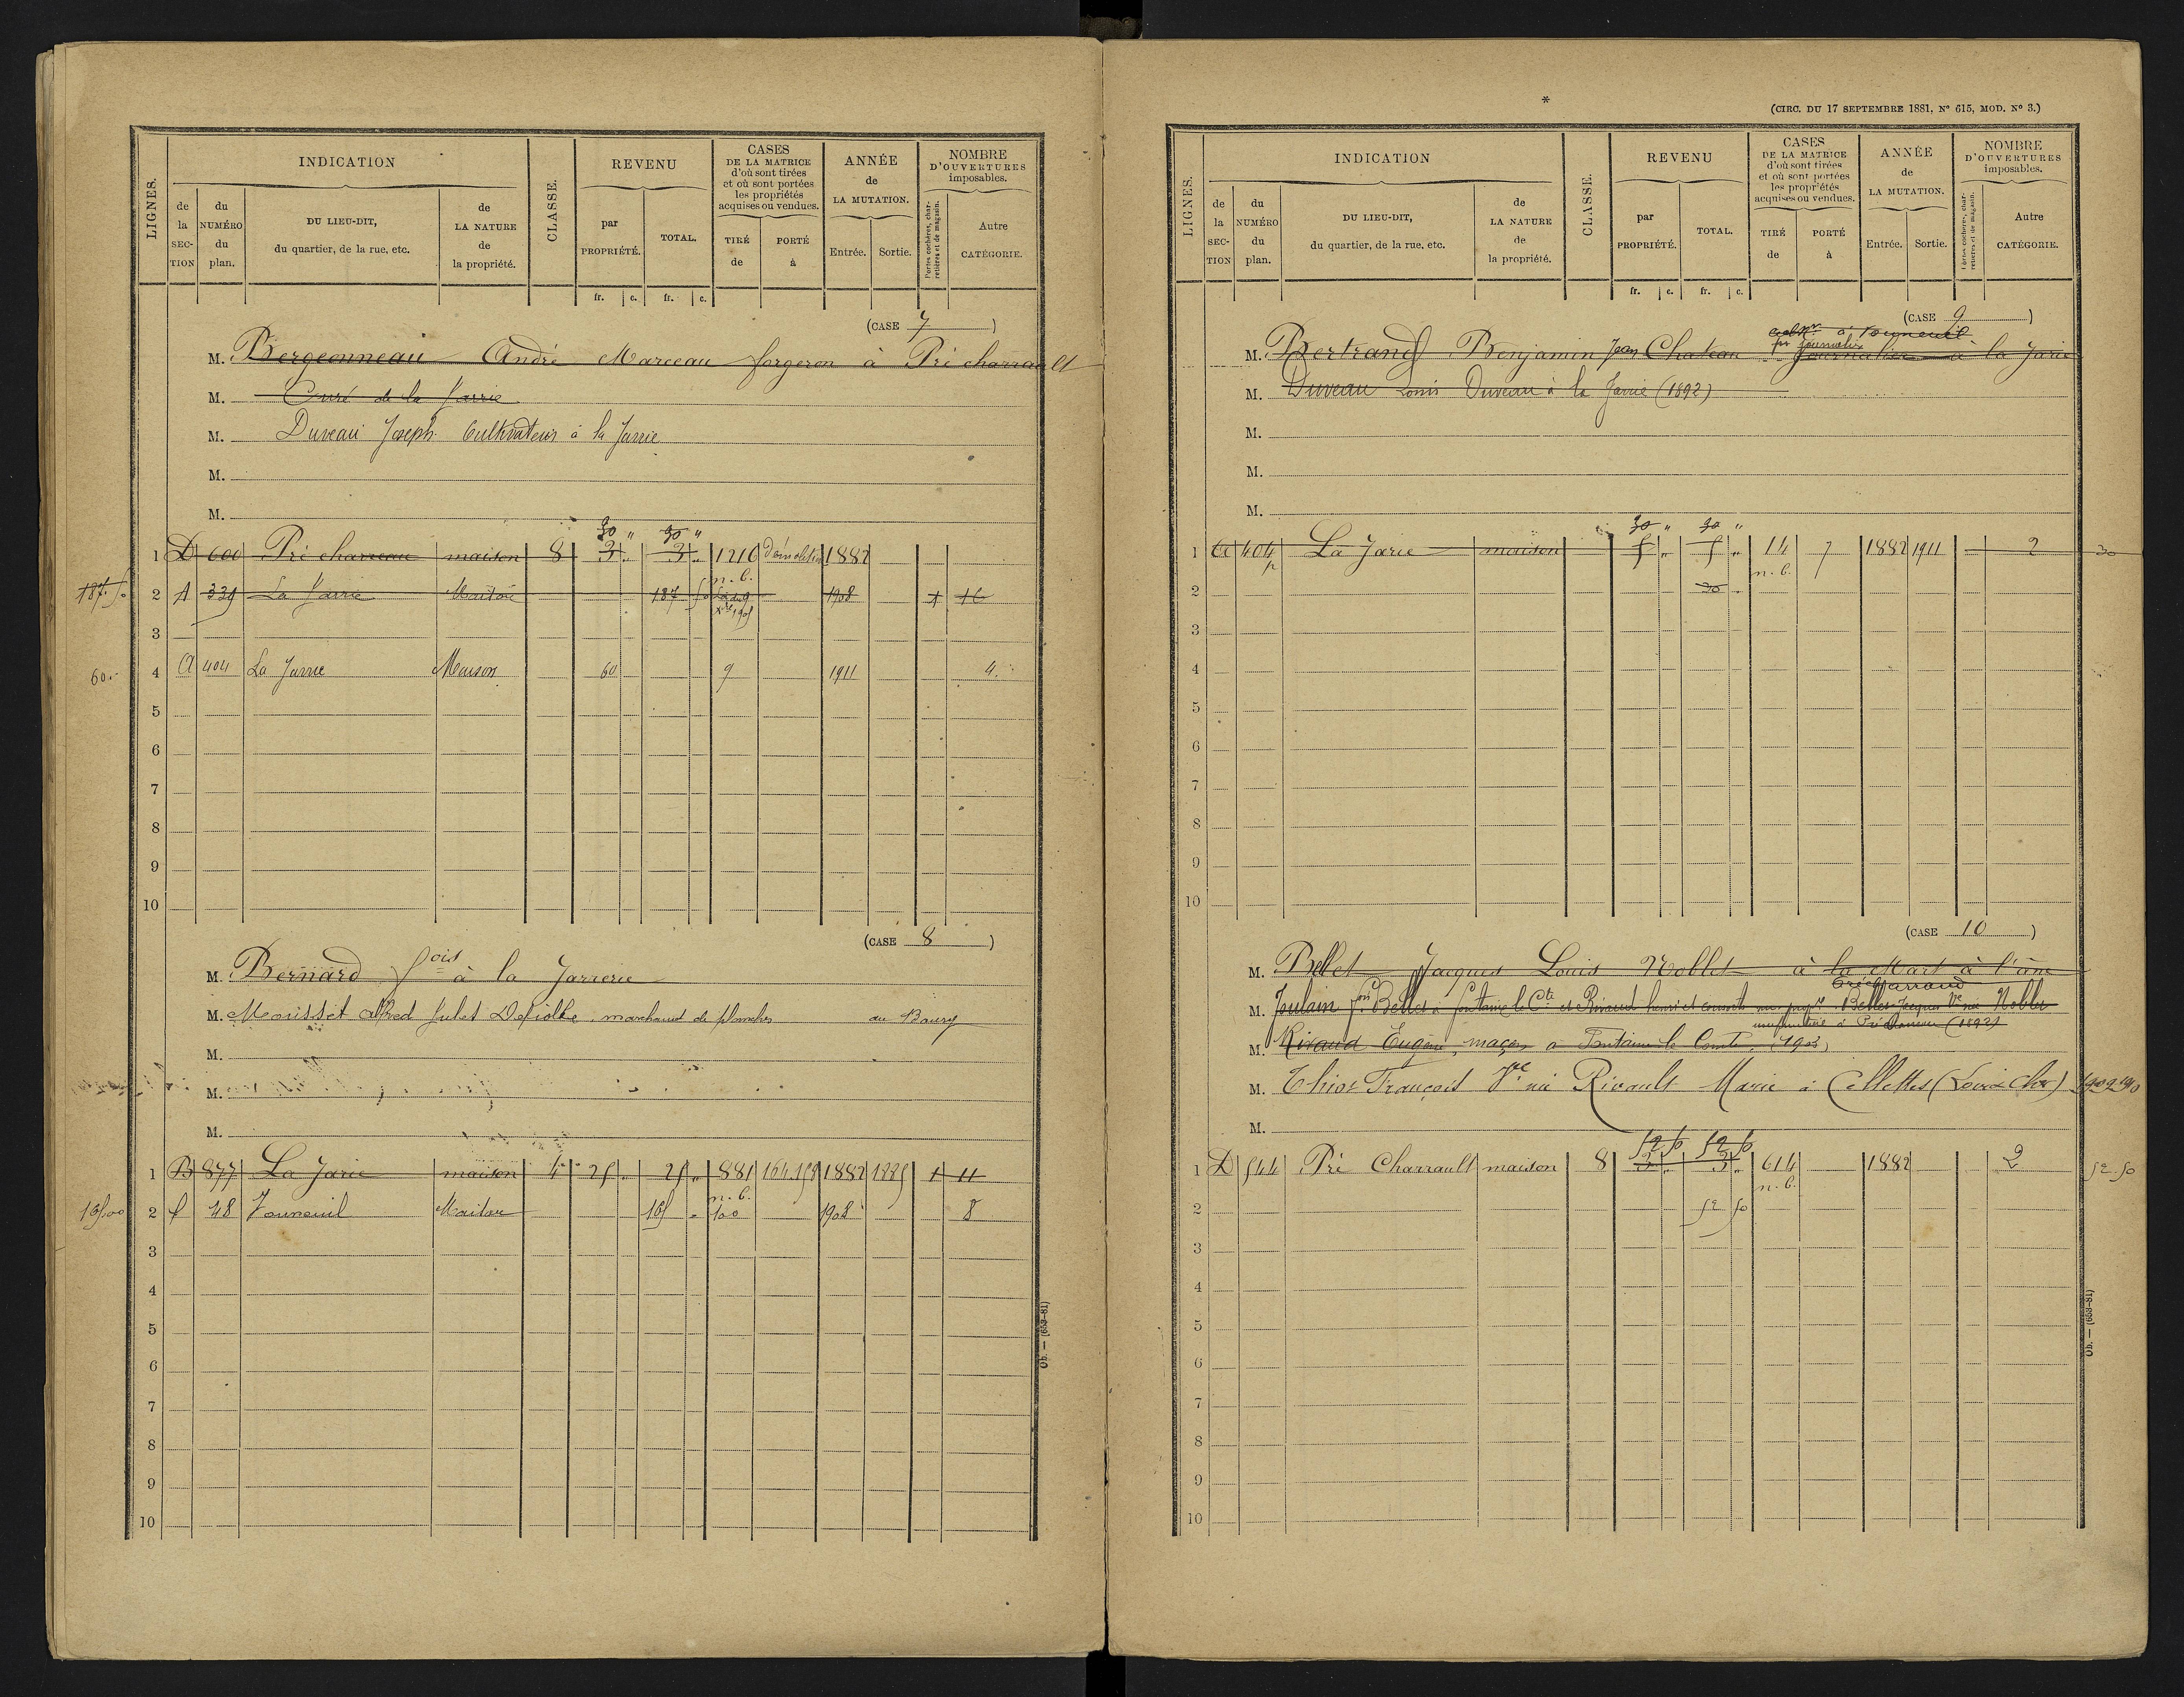 LIGNES.
INDICATION
de la SECTION
du NUMÉRO du plan.
DU LIEU-DIT, du quartier, de la rue, etc.
de LA NATURE de la propriété.
CLASSE.
REVENU
par PROPRIÉTÉ.
TOTAL.
fr. c. fr. c.
CASES DE LA MATRICE d'où sont tirées et où sont portées les propriétés acquises ou vendues.
TIRÉ de
PORTÉ à
ANNÉE de LA MUTATION.
Entrée. Sortie.
NOMBRE D'OUVERTURES imposables.
Portes cochères, charretières et de magasin.
Autre CATÉGORIE.
(CASE 7)
M. Bergeonneau André Marceau forgeron à Pré charrault
M. Curé de la Jarrie
M. Duveau Joseph Cultivateur à la Jarrie
M.
M.
30 " 30 "
1 D 600 Pré charreau maison 8 3 " 3 " 1216 Démolition 1882
n. b.
187.50 2 A 339 La Jarrie Maison 187 50 1908 1 16
3
60.- 4 A 404 La Jarrie Maison 60 9 1911 4
5
6
7
8
9
10
(CASE 8)
M. Bernard fois à la Jarrerie
M. Morisset Alfred Jules marchand de planches au Bourg
M.
M.
M.
1 B 877 La Jarie maison 4 25 " 25 " 881 164.158 1882 1885 1 11
n. b.
2 48 Vouneuil Maison 105 - 100 1908 8
3
4
5
6
7
8
9
10
Ob. — (653-81)
*
(CIRC. DU 17 SEPTEMBRE 1881, N° 615, MOD. N° 3.)
LIGNES.
INDICATION
de la SECTION
du NUMÉRO du plan.
DU LIEU-DIT, du quartier, de la rue, etc.
de LA NATURE de la propriété.
CLASSE.
REVENU
par PROPRIÉTÉ.
TOTAL.
fr. c. fr. c.
CASES DE LA MATRICE d'où sont tirées et où sont portées les propriétés acquises ou vendues.
TIRÉ de
PORTÉ à
ANNÉE de LA MUTATION.
Entrée. Sortie.
NOMBRE D'OUVERTURES imposables.
Portes cochères, charretières et de magasin.
Autre CATÉGORIE.
(CASE 9)
à Vouneuil
M. Bertrand Benjamin Jean Chateau journalier à la Jarie
M. Duveau Louis Duveau à la Jarrie (1892)
M.
M.
M.
30 " 30 "
1 A 404 p La Jarie maison 5 " 5 " 14 7 1882 1911 2 30
n. b.
2 30
3
4
5
6
7
8
9
10
(CASE 10)
M. Bellet Jacques Louis Noblet à la Mart à l'âne
Pré Charraud
M. Joulain fois Bellet à fontaine le Cte et Rivaud henri et consorts nu propres Bellet Jacques Ve née Noblet
usufruitière à Pré Charreau (1892)
M. Rivaud Eugène, maçon à Fontaine le Comte (1903)
M. Thior François Vve née Rivault Marie à Cellettes (Loir & Cher) 1909
M.
52 50 52 50
1 D 544 Pré Charrault maison 8 3 " 3 " 614 1882 2 52 50
n. b.
2 52 50
3
4
5
6
7
8
9
10
Ob. — (653-81)